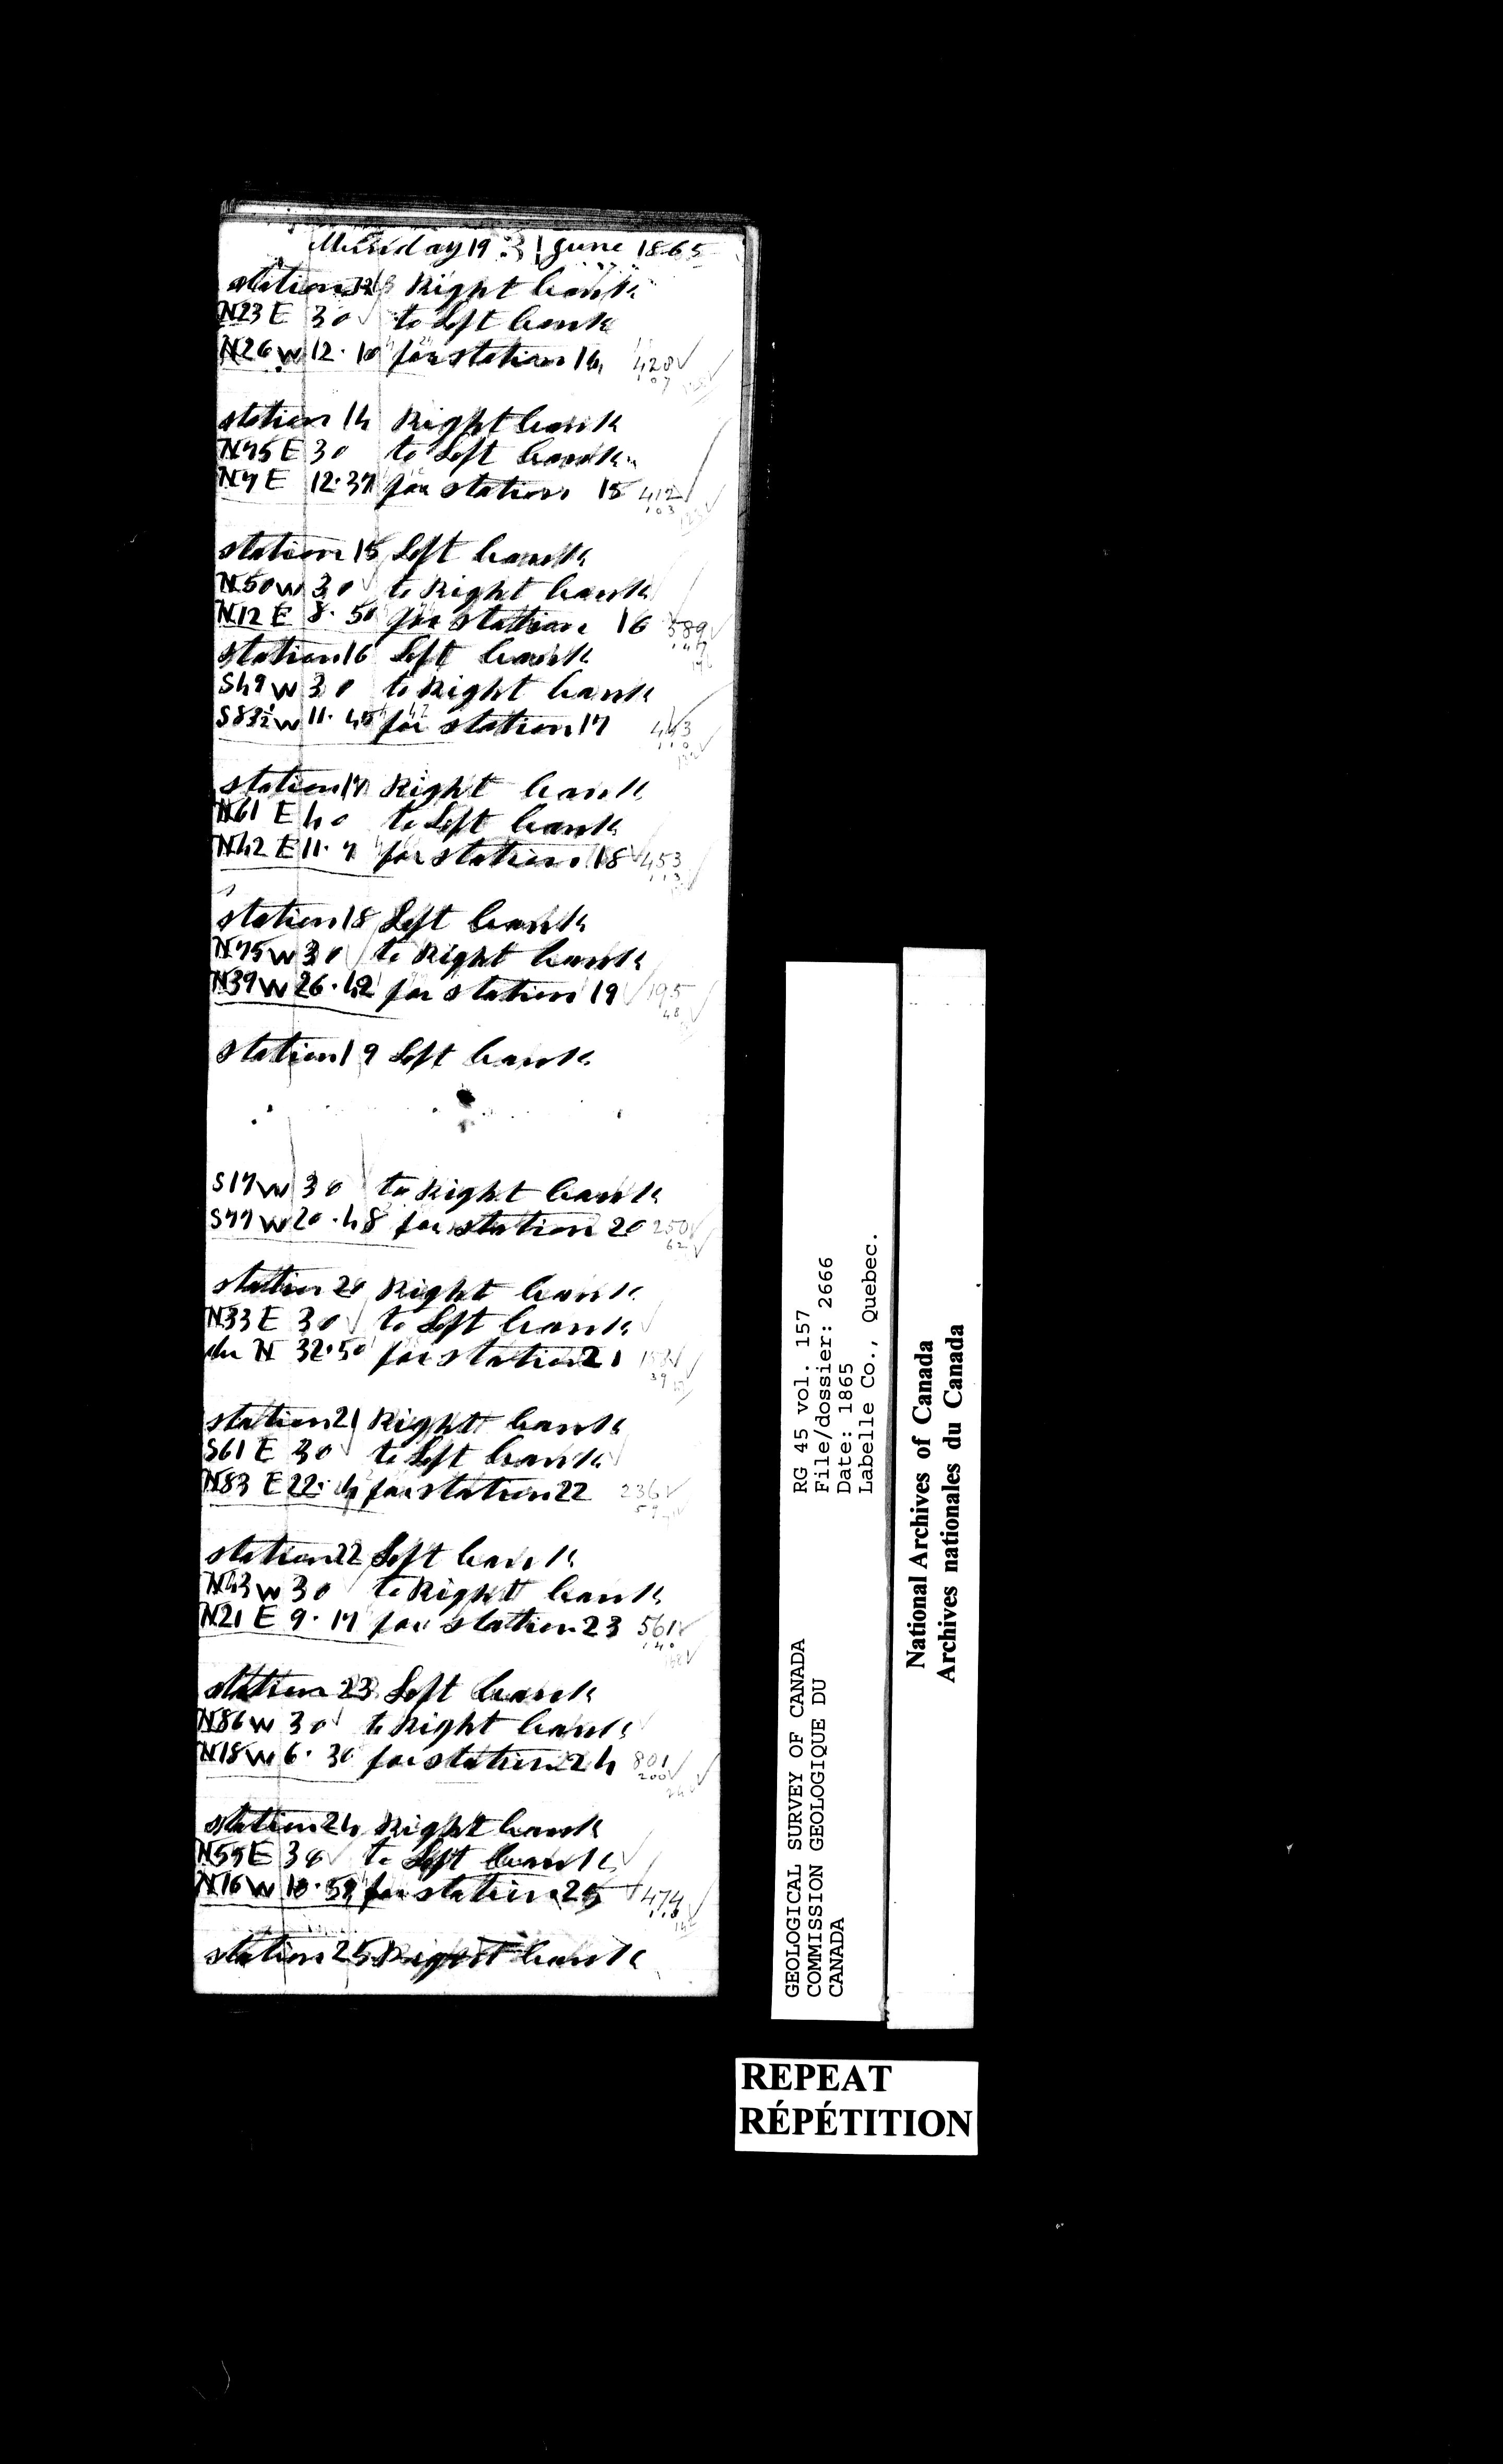 Munday 19 June 1865
station 13 Right bank
N23E 30 to Left bank
N26W 12·10 for station 14 428
107
station 14 Right bank
N75E 30 to Left bank
N7E 12·37 for station 15 412
103
station 15 Left bank
N50W 30 to Right bank
N12E 8·50 for station 16 589
147
station 16 Left bank
S49W 30 to Right bank
S83½W 11·45 for station 17 443
110
station 17 Right bank
N61E 40 to Left bank
N42E 11·7 for station 18 453
113
station 18 Left bank
N75W 30 to Right bank
N39W 26·42 for station 19 195
48
station 19 Left bank
S17W 30 to Right bank
S77W 20·48 for station 20 250
62
station 20 Right bank
N33E 30 to Left bank
du N 32·50 for station 21 153
39
station 21 Right bank
S61E 30 to Left bank
N83E 22·4 for station 22 236
59
station 22 Left bank
N43W 30 to Right bank
N21E 9·17 for station 23 561
140
station 23 Left bank
N86W 30 to Right bank
N18W 6·30 for station 24 801
200
station 24 Right bank
N55E 30 to Left bank
N16W 10·59 for station 25 474
118
station 25 Right bank
GEOLOGICAL SURVEY OF CANADA
COMMISSION GEOLOGIQUE DU
CANADA
RG 45 vol. 157
File/dossier: 2666
Date: 1865
Labelle Co., Quebec.
National Archives of Canada
Archives nationales du Canada
REPEAT
RÉPÉTITION